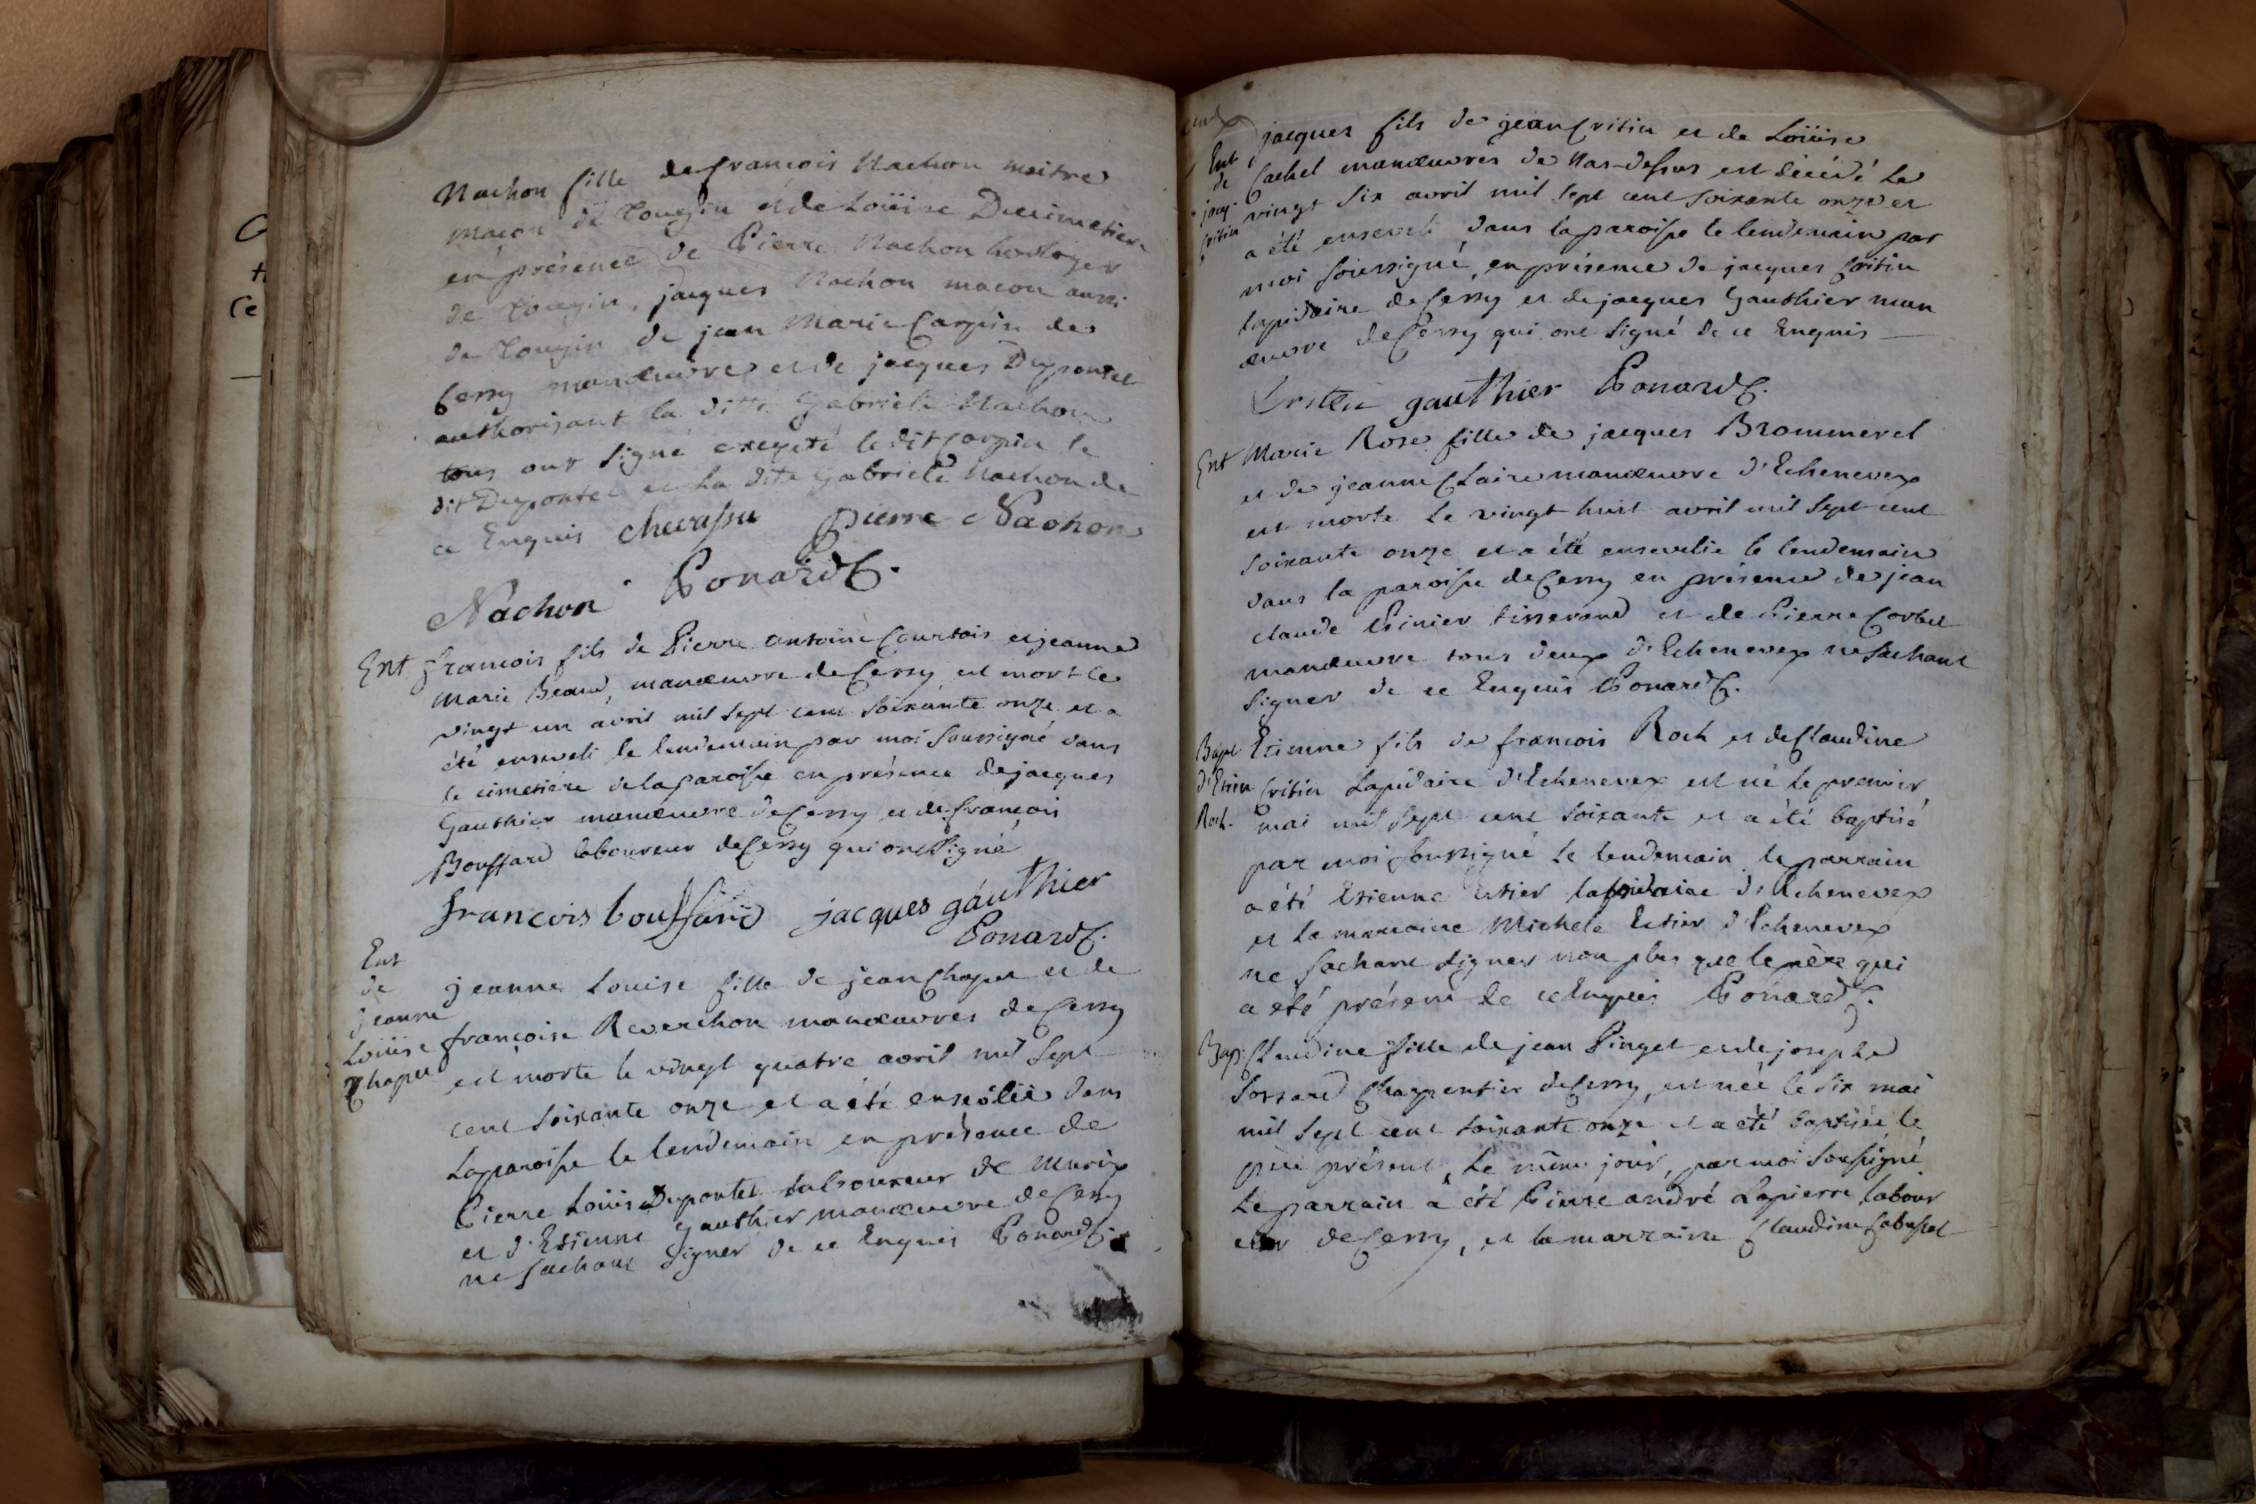 Nachon fille de francois Nachon maitre
macon de Tougin et de Loüise Ducimetiere
en présence de Pierre Nachon horloger
de Tougin, jacques Nachon macon aussi
de Tougin de jean Marie Carpin de
Cessy manœuvre et de jacques Dupontet
authorisant la ditte Gabriele Nachon
tous ont signé excepté le dit Carpin le
dit Dupontet et la dite Gabriele Nachon de
ce Enquis chevassu pierre Nachon
Nachon Ponard C.
Ent francois fils de Pierre antoine Courtois et jeanne
Marie Beaud, manœuvre de Cessy est mort le
vingt un avril mil sept cent soixante onze et a
été enseveli le lendemain par moi soussigné dans
le cimetière de la paroisse en présence de jacques
Gauthier manœuvre de Cessy et de francois
Bouffard laboureur de Cessy qui ont signé
francois bouffard jacques gauthier
Ponard C.
Ent
de
jeanne
Loüise
Chapu
jeanne Louise fille de jean Chapu et de
françoise Reverchon manœuvres de Cessy
est morte le vingt quatre avril mil sept
cent soixante onze et a été ensevelie dans
la paroisse le lendemain en présence de
Pierre Loüis Dupontet laboureur de Murix
et d'Etienne Gauthier manœuvre de Cessy
ne sachant signer de ce Enquis Ponard C.
Ent
de
jacq.
Critin
jacques fils de jean Critin et de Loüise
Cachel manœuvres de Nas-dessus est décédé le
vingt six avril mil sept cent soixante onze et
a été enseveli dans la paroisse le lendemain par
moi soussigné, en présence de jacques Critin
lapidaire de Cessy et de jacques Gauthier man
œuvre de Cessy qui ont signé de ce Enquis
Critin gauthier Ponard C.
Ent Marie Rose fille de jacques Brommerel
et de jeanne Claire manœuvre d'Echenevex
est morte le vingt huit avril mil sept cent
soixante onze et a été ensevelie le lendemain
dans la paroisse de Cessy en présence de jean
claude Prinier tisserand et de Pierre Corbet
manœuvre tous deux d'Echenevex ne sachant
signer de ce Enquis Ponard C.
Bapt.
d'Etien
Roch.
Etienne fils de francois Roch et de Claudine
Critin Lapidaire d'Echenevex est né le premier
mai mil sept cent soixante et a été baptisé
par moi soussigné le lendemain le parrain
a été Etienne Estier lapidaire d'Echenevex
et la marraine Michele Estier d'Echenevex
ne sachant signer non plus que le père qui
a été présent de ce Enquis Ponard C.
Bap. Claudine fille de jean Pinget et de josephe
Sossard Charpentier de Cessy, est née le six mai
mil sept cent soixante onze et a été baptisée le
père présent, le même jour, par moi soussigné
le parrain a été Pierre andré Lapierre labour
eur de Cessy, et la marraine Claudine